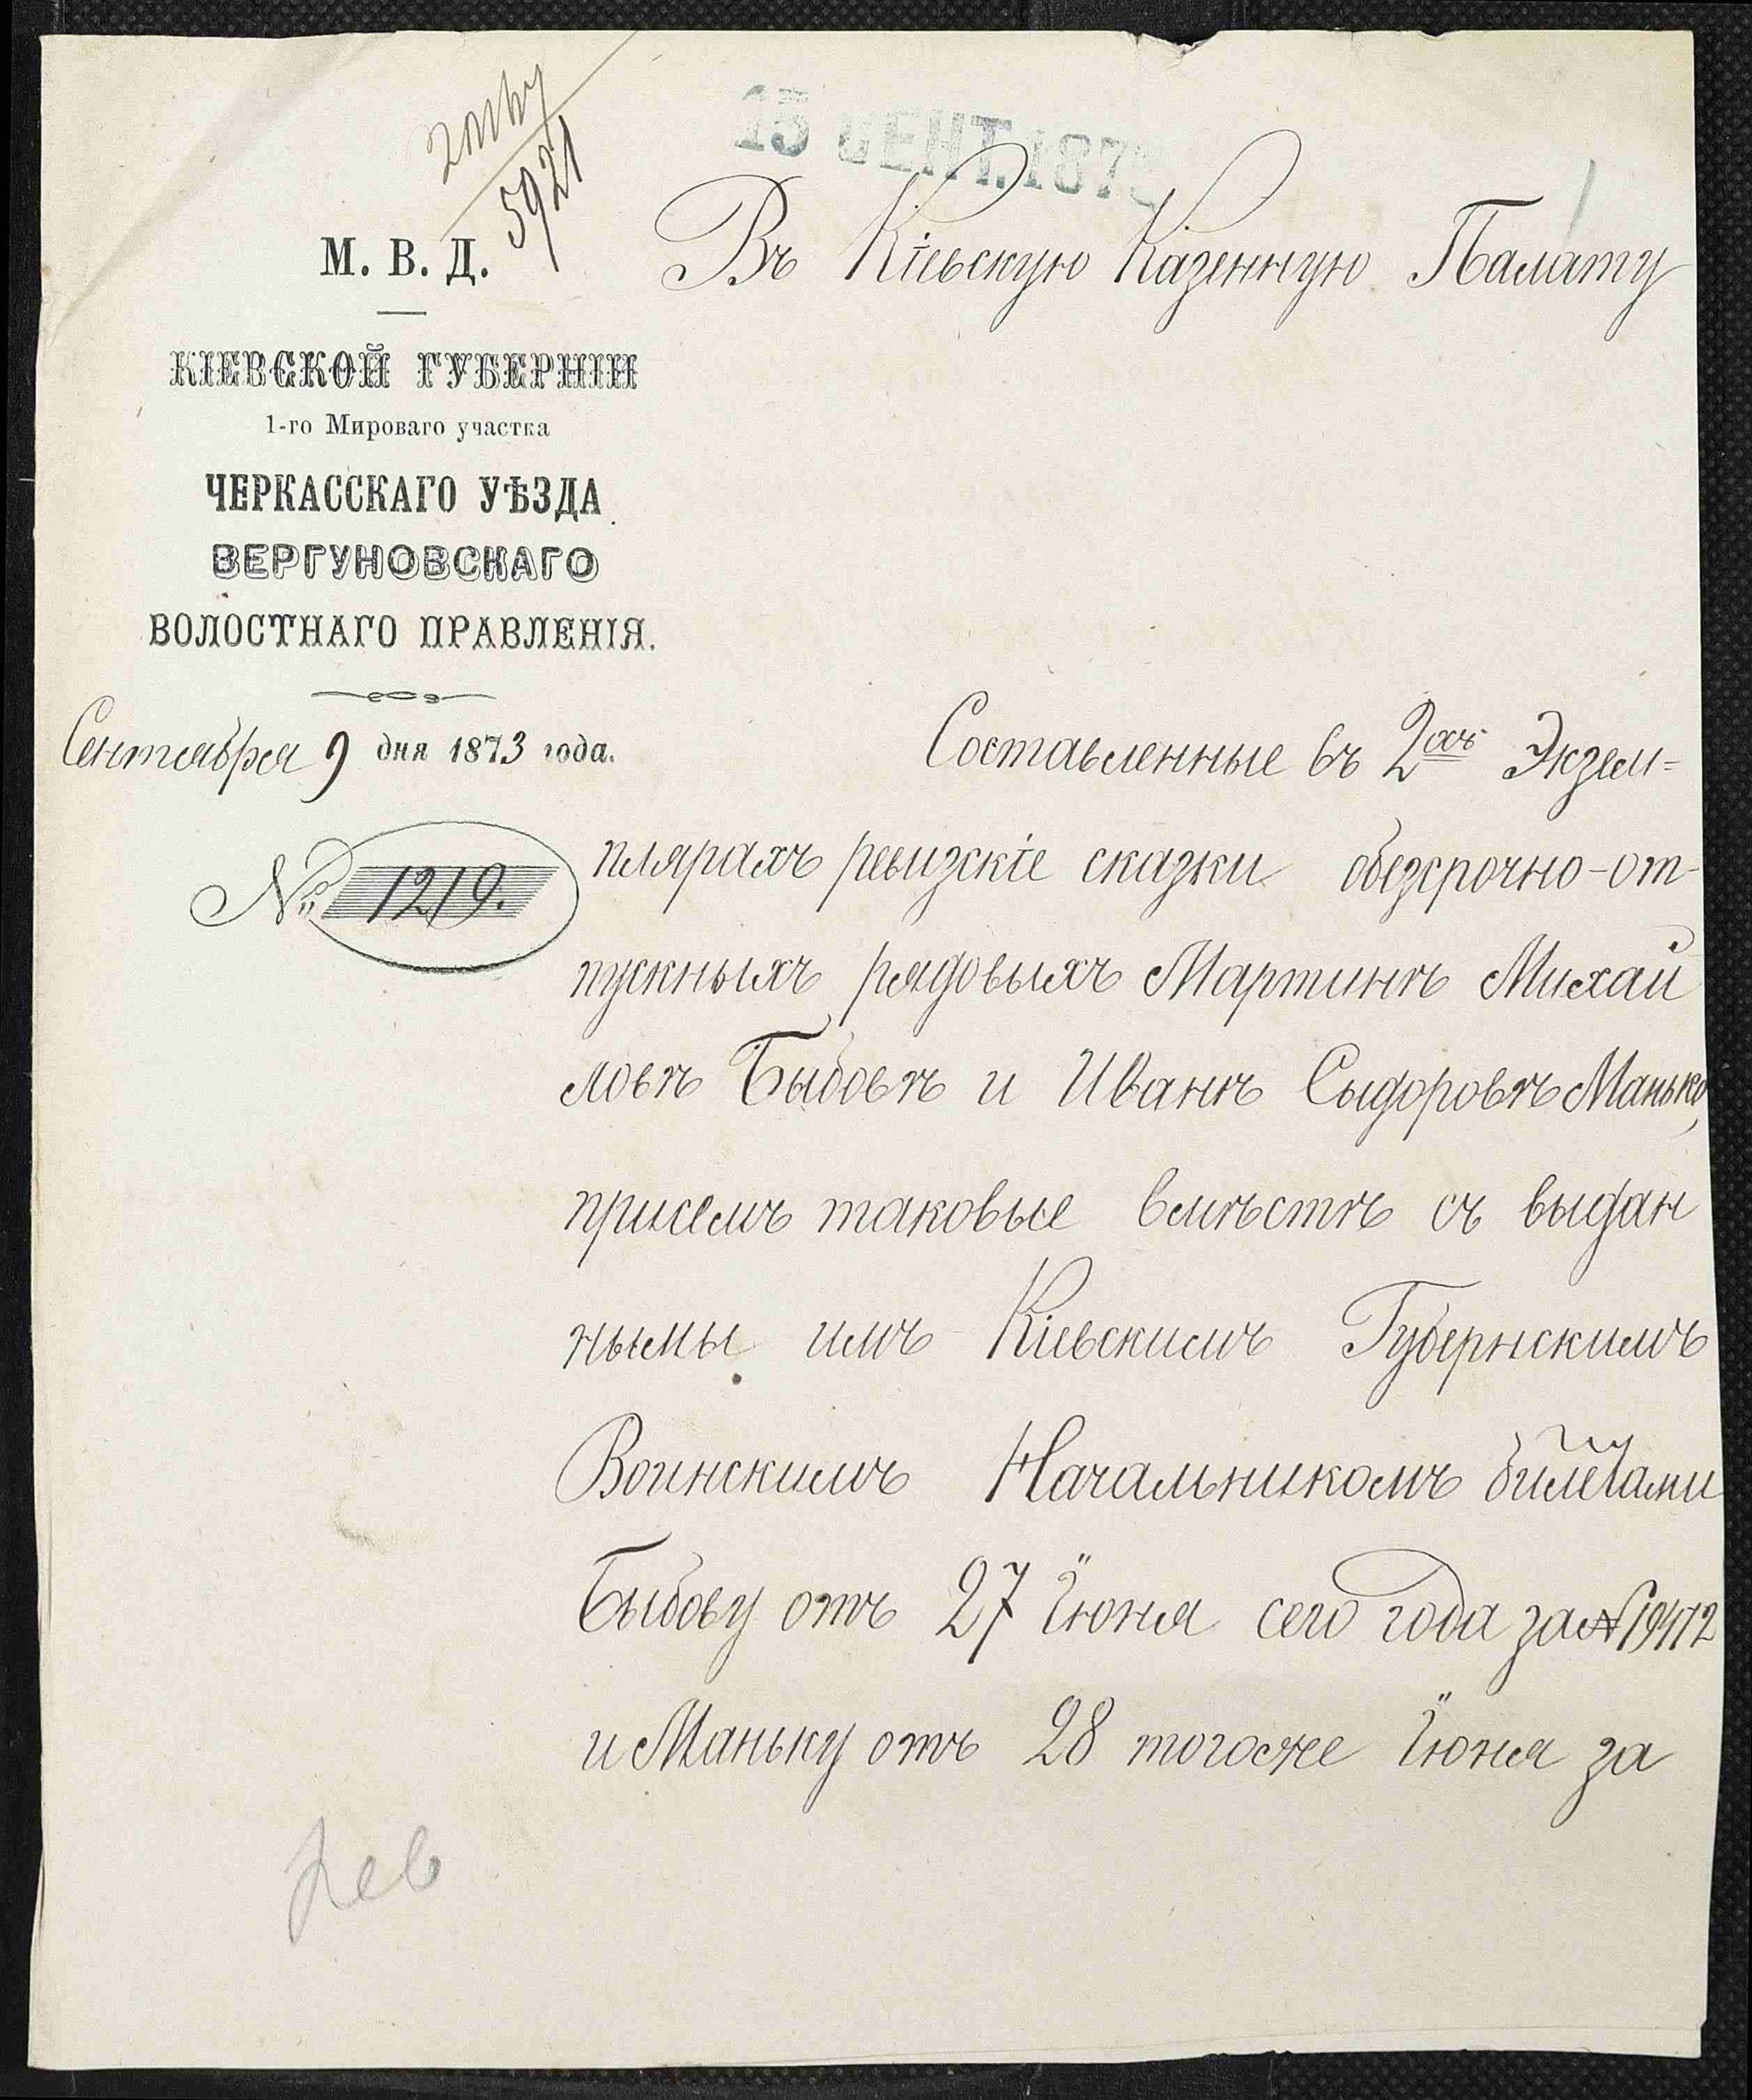 5921
15 СЕНТ. 187
Въ Кіевскую Казенную Палату
М. В. Д.
КІЕВСКОЙ ГУБЕРНІИ
1-го Мироваго участка
ЧЕРКАССКАГО УѢЗДА
ВЕРГУНОВСКАГО
ВОЛОСТНАГО ПРАВЛЕНІЯ.
Сентября 9 дня 1873 года.
№ 1219.
Составленные въ 2хъ Экзем=
плярахъ ревизскіе сказки обезсрочно-от-
пускныхъ рядовыхъ Мартинъ Михай
ловъ Быбовъ и Иванъ Сыдоровъ Манько,
присемъ таковые вмѣстѣ съ выдан
нымы имъ Кіевскимъ Губернскимъ
Воинскимъ Начальникомъ билетами
Быбову отъ 27 Іюня сего года за №
и Маньку отъ 28 тогоже Іюня за